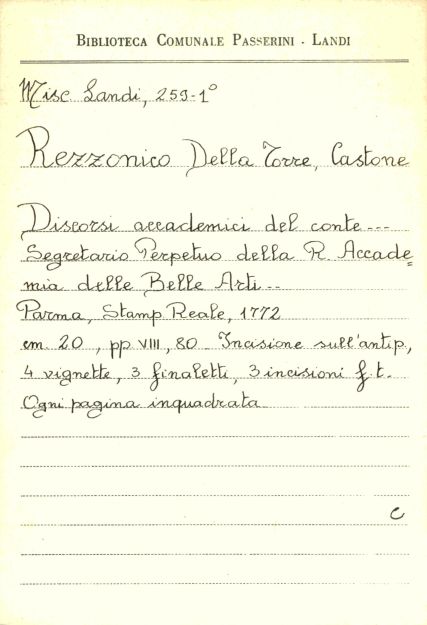 BIBLIOTECA COMUNALE PASSERINI - LANDI
Misc. Landi, 259-1º
Rezzonico Della Torre, Castone
Discorsi accademici del conte ---
Segretario Perpetuo della R. Accade=
mia delle Belle Arti --
Parma, Stamp. Reale, 1772
cm. 20, pp. VIII, 80. Incisione sull'antip.,
4 vignette, 3 finaletti, 3 incisioni f.t.
Ogni pagina inquadrata
C